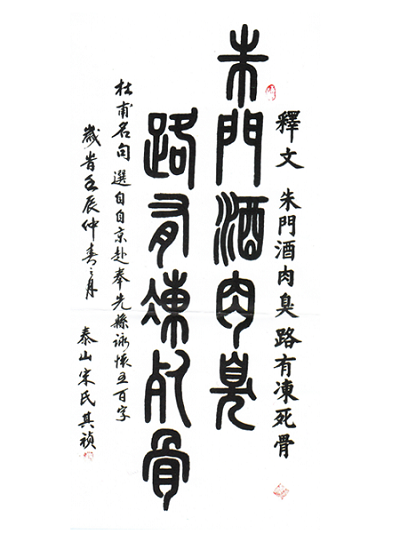 釋文 朱門酒肉臭路有凍死骨
朱門酒肉臭
路有凍死骨
杜甫名句選自自京赴奉先縣詠懷五百字
歲旹壬辰仲春之月 泰山宋氏其禎